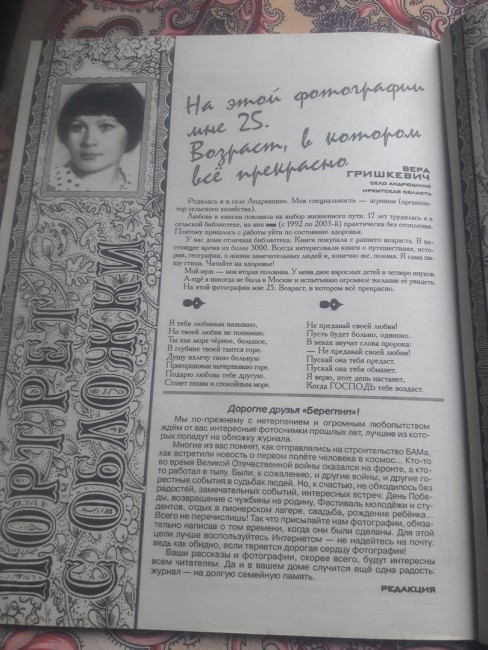 ПОРТРЕТ
С ОБЛОЖКИ
На этой фотографии
мне 25.
Возраст, в котором
всё прекрасно.
ВЕРА
ГРИШКЕВИЧ
СЕЛО АНДРЮШИНО
ИРКУТСКАЯ ОБЛАСТЬ
Родилась я в селе Андрюшино. Моя специальность — агроном (организа-
тор сельского хозяйства).
Любовь к книгам повлияла на выбор жизненного пути. 17 лет трудилась я в
сельской библиотеке, на них (с 1992 по 2003-й) практически без отопления.
Поэтому пришлось с работы уйти по состоянию здоровья.
У нас дома отличная библиотека. Книги покупала с раннего возраста. В на-
стоящее время их более 3000. Всегда интересовали книги о путешествиях, исто-
рии, географии, о жизни замечательных людей и, конечно же, поэзия. Я сама пи-
шу стихи. Читайте на здоровье!
Мой муж — моя вторая половина. У меня двое взрослых детей и четверо внуков.
А ещё я никогда не была в Москве и испытываю огромное желание её увидеть.
На этой фотографии мне 25. Возраст, в котором всё прекрасно.
Я тебя любимым называю,
Но твоей любви не понимаю.
Ты как море чёрное, большое,
В глубине твоей таится горе.
Душу излечу твою больную
Пригоршнями вычерпываю горе.
Подарю любовь тебе другую.
Станет тишим и спокойным море.
Не предавай своей любви!
Пусть будет больно, одиноко.
В веках звучат слова пророка:
— Не предавай своей любви!
Пускай она тебя предаст.
Пускай она тебя обманет.
Я верю, этот день настанет,
Когда ГОСПОДЬ тебе воздаст.
Дорогие друзья «Берегини»!
Мы по-прежнему с нетерпением и огромным любопытством
ждём от вас интересные фотоснимки прошлых лет, лучшие из кото-
рых попадут на обложку журнала.
Многие из вас помнят, как отправлялись на строительство БАМа,
как встретили новость о первом полёте человека в космос... Кто-то
во время Великой Отечественной войны оказался на фронте, а кто-
то работал в тылу. Были, к сожалению, и другие войны, и другие го-
рестные события в судьбах людей. Но, к счастью, не обходилось без
радостей, замечательных событий, интересных встреч: День Побе-
ды, возвращение с чужбины на родину, Фестиваль молодёжи и сту-
дентов, отдых в пионерском лагере, свадьба, рождение ребёнка...
Всего не перечислишь! Так что присылайте нам фотографии, обяза-
тельно написав о том времени, когда они были сделаны. Для этой
цели лучше воспользуйтесь Интернетом — не надейтесь на почту:
ведь как обидно, если теряется дорогая сердцу фотография!
Ваши рассказы и фотографии, скорее всего, будут интересны
всем читателям. Да и в вашем доме случится ещё одна радость:
журнал — на долгую семейную память.
РЕДАКЦИЯ